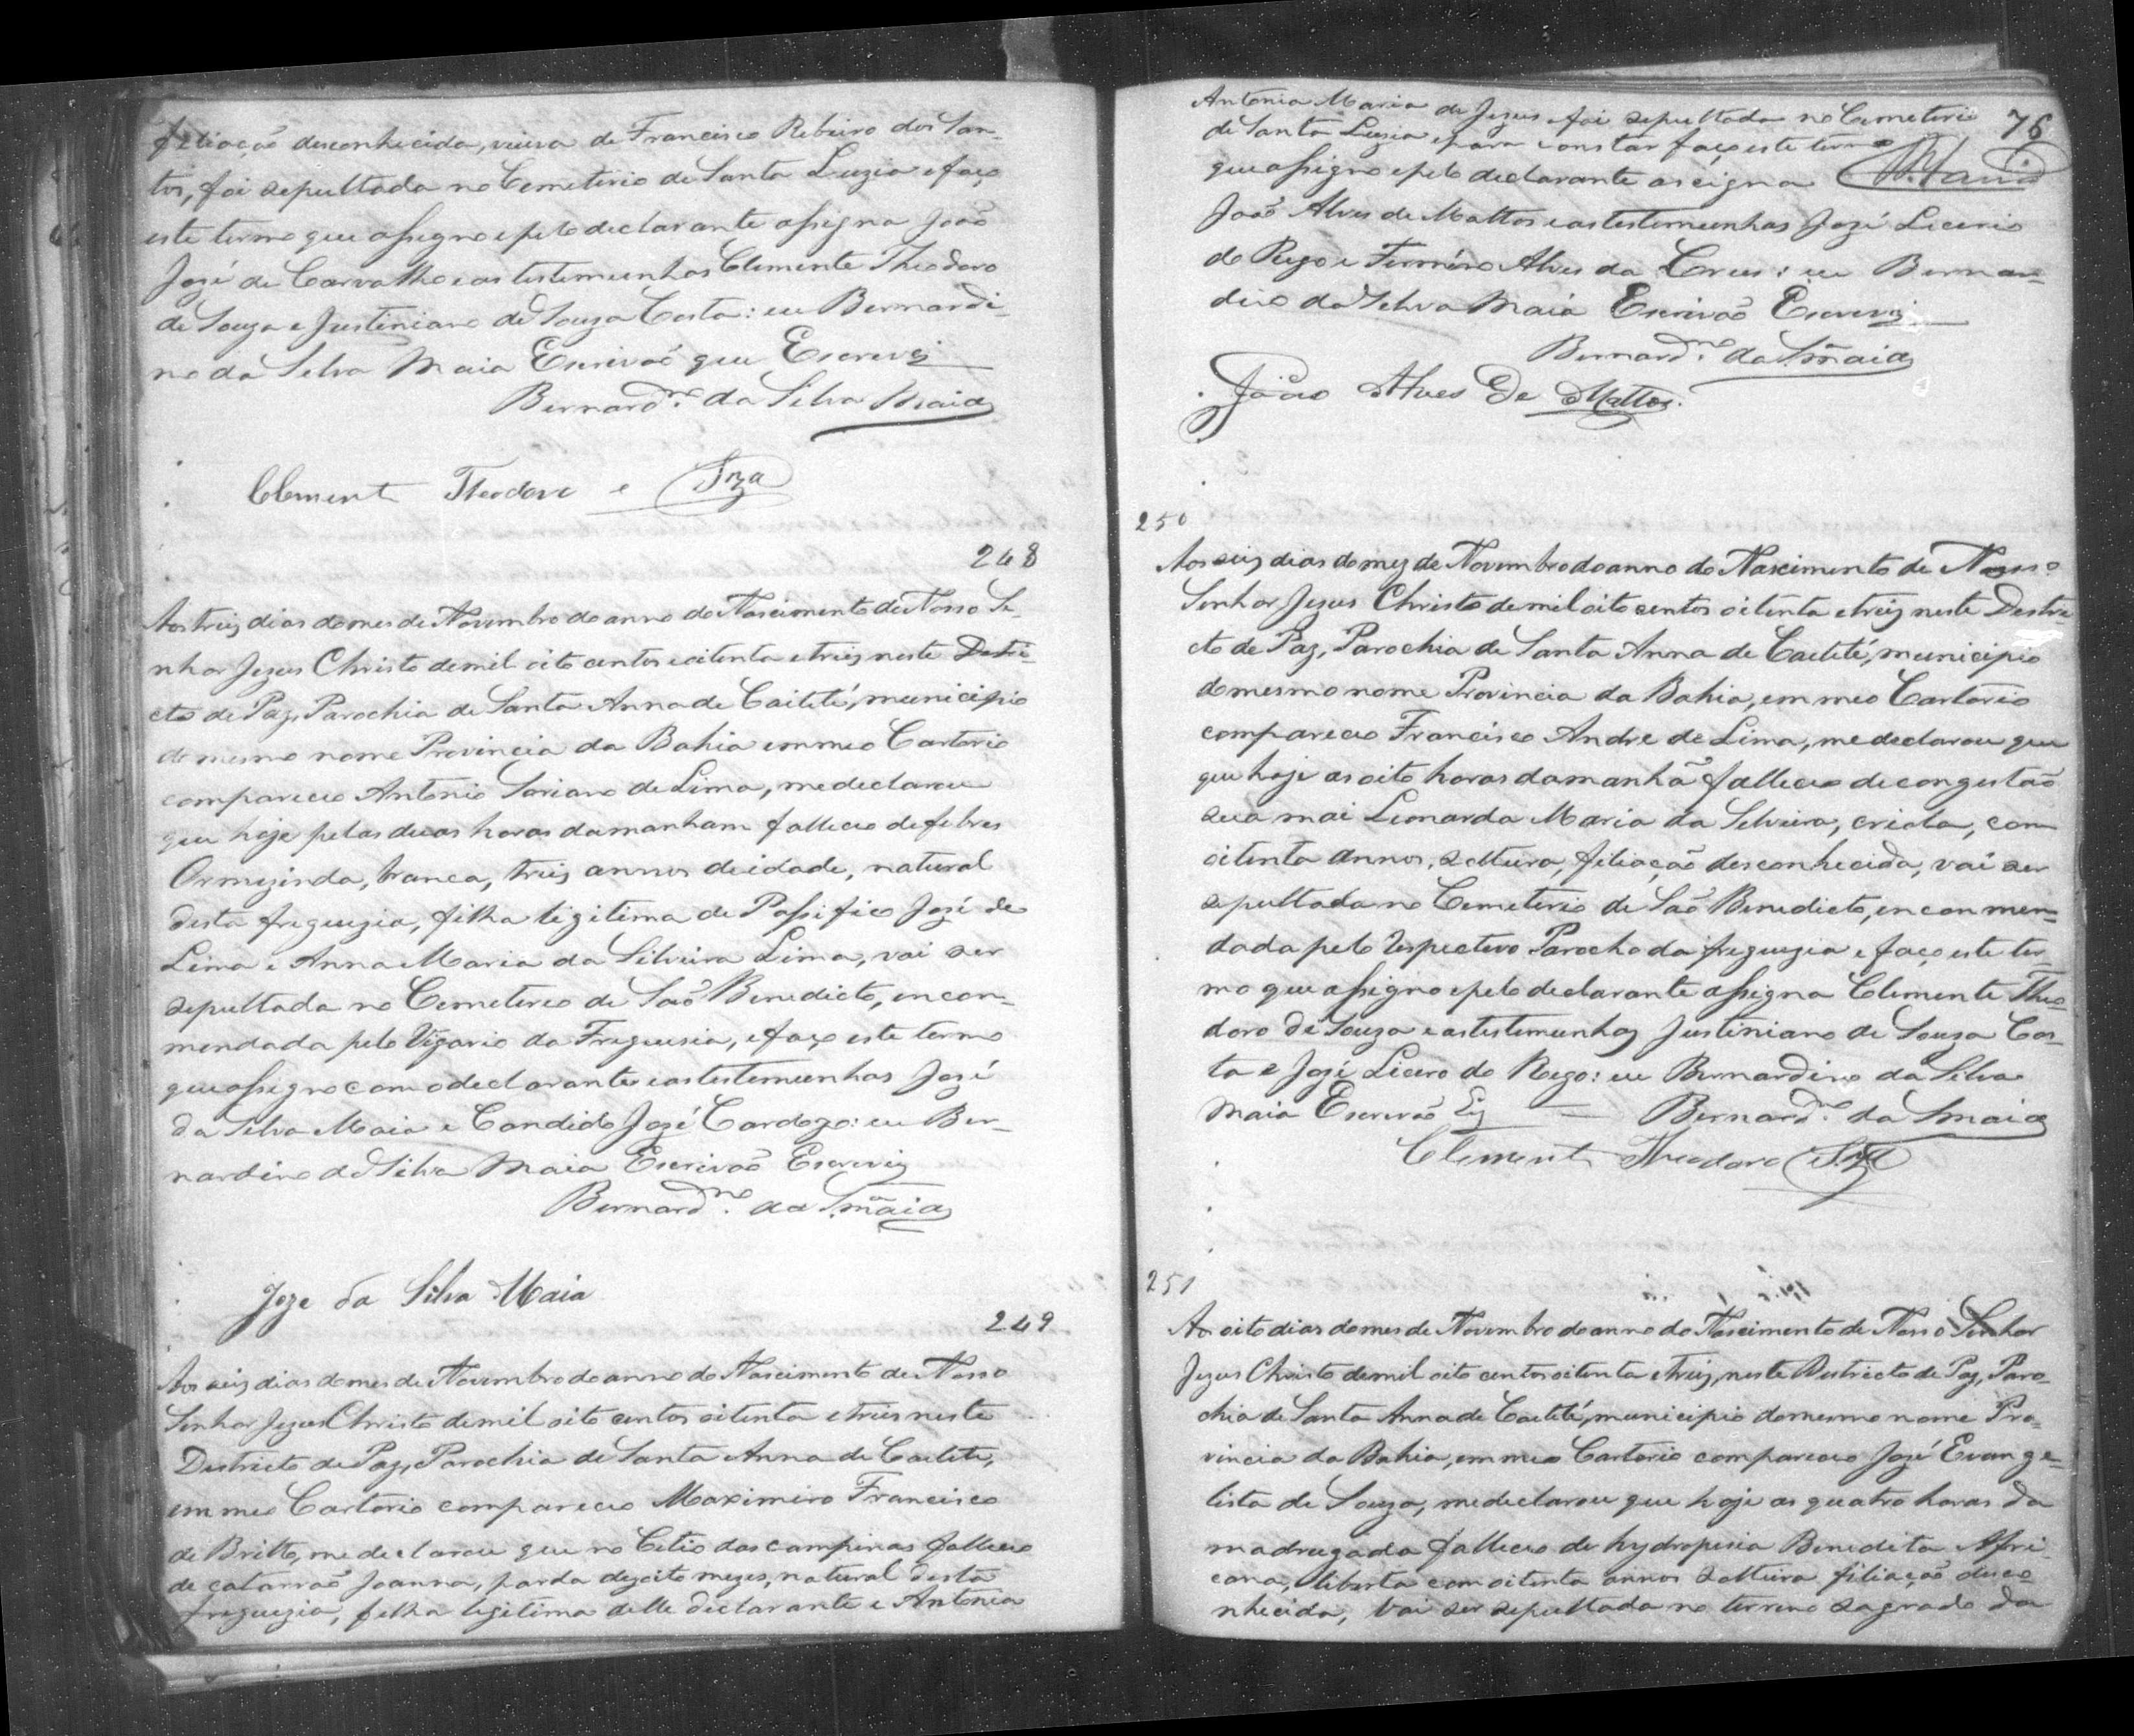 filiação desconhecida, viuva de Francisco Ribeiro dos San-
tos, foi sepultada no Cemeterio de Santa Luzia e faço
este termo que assigno e pelo declarante assigna João
José de Carvalho e as testemunhas Clemente Theodoro
de Souza e Justiniano de Souza Costa: eu Bernardi-
no da Silva Maia Escrivaõ que Escrevi
Bernard.no da Silva Maia
Clement Theodoro e Sza
248
Aos treis dias do mes de Novembro do anno do Nascimento de Nosso Se-
nhor Jezus Christo de mil oito centos e oitenta e treis neste Destri-
cto de Paz, Parochia de Santa Anna de Caiteté, municipio
do mesmo nome Provincia da Bahia em meo Cartorio
compareceo Antonio Soriano de Lima, me declarou
que hoje pelas duas horas da manham falleceo de febres
Ormezinda, branca, treis annos de idade, natural
desta freguezia, filha ligitima de Passifico José de
Lima e Anna Maria da Silveira Lima, vai ser
sepultada no Cemeterio de Saõ Benedicto, encom-
mendada pelo Vigario da Freguesia, e faço este termo
que assigno com o declarante e as testemunhas José
da Silva Maia e Candido José Cardozo: eu Ber-
nardino da Silva Maia Escrivaõ Escrevi
Bernard.no da S.a Maia
Joze da Silva Maia
249
Aos seis dias do mes de Novembro do anno do Nascimento de Nosso
Senhor Jezus Christo de mil oito centos oitenta e treis neste
Destricto de Paz, Parochia de Santa Anna de Caeteté,
em meo Cartorio compareceo Maximiro Francisco
de Britto, me declarou que no Citio das campinas falleceo
de catarraõ Joanna, parda dezoito mezes, natural desta
freguezia, filha legitima delle declarante e Antonia
76
Antonia Maria de Jezus foi sepultada no Cemeterio
de Santa Luzia, e para constar faço este termo
que assigno e pelo declarante asigna
João Alves de Mattos e as testemunhas José Licerio
do Rego e Firmino Alves da Cruz: eu Bernar-
dino da Silva Maia Escrivaõ Escrevi
Bernard.no da S.a Maia
João Alves De Mattos.
250
Aos seis dias do mez de Novembro do anno do Nascimento de Nosso
Senhor Jezus Christo de mil oito centos oitenta e treis neste Destri
cto de Paz, Parochia de Santa Anna de Caeteté, municipio
do mesmo nome Provincia da Bahia, em meo Cartorio
compareceo Francisco Andre de Lima, me declarou que
que hoje as oito horas da manhã falleceo de congestaõ
sua mai Leonarda Maria da Silveira, criola, com
oitenta annos, solteira, filiação desconhecida, vai ser
sepultada no Cemeterio de Saõ Benedicto, encommen-
dada pelo respectivo Parocho da freguezia e faço este ter-
mo que assigno e pelo declarante assigna Clemente Theo-
doro de Souza e as testemunhas Justiniano de Souza Cos-
ta e José Licero do Rego: eu Bernardino da Silva
Maia Escrivaõ Es Bernard.no da S Maia
Clement Theodoro Sza
251
Ao oito dias do mes de Novembro do anno do Nascimento de Nosso Senhor
Jezus Christo de mil oito centos oitenta e treis, neste Destricto de Paz, Paro-
chia de Santa Anna de Caeteté, municipio do mesmo nome Pro-
vincia da Bahia, em meo Cartorio compareceo José Evange-
lista de Souza, me declarou que hoje as quatro horas da
madrugada falleceo de hydropisia Benedita Afri-
cana, liberta com oitenta annos solteira filiação desco-
nhecida, vai ser sepultada no terreno sagrado da